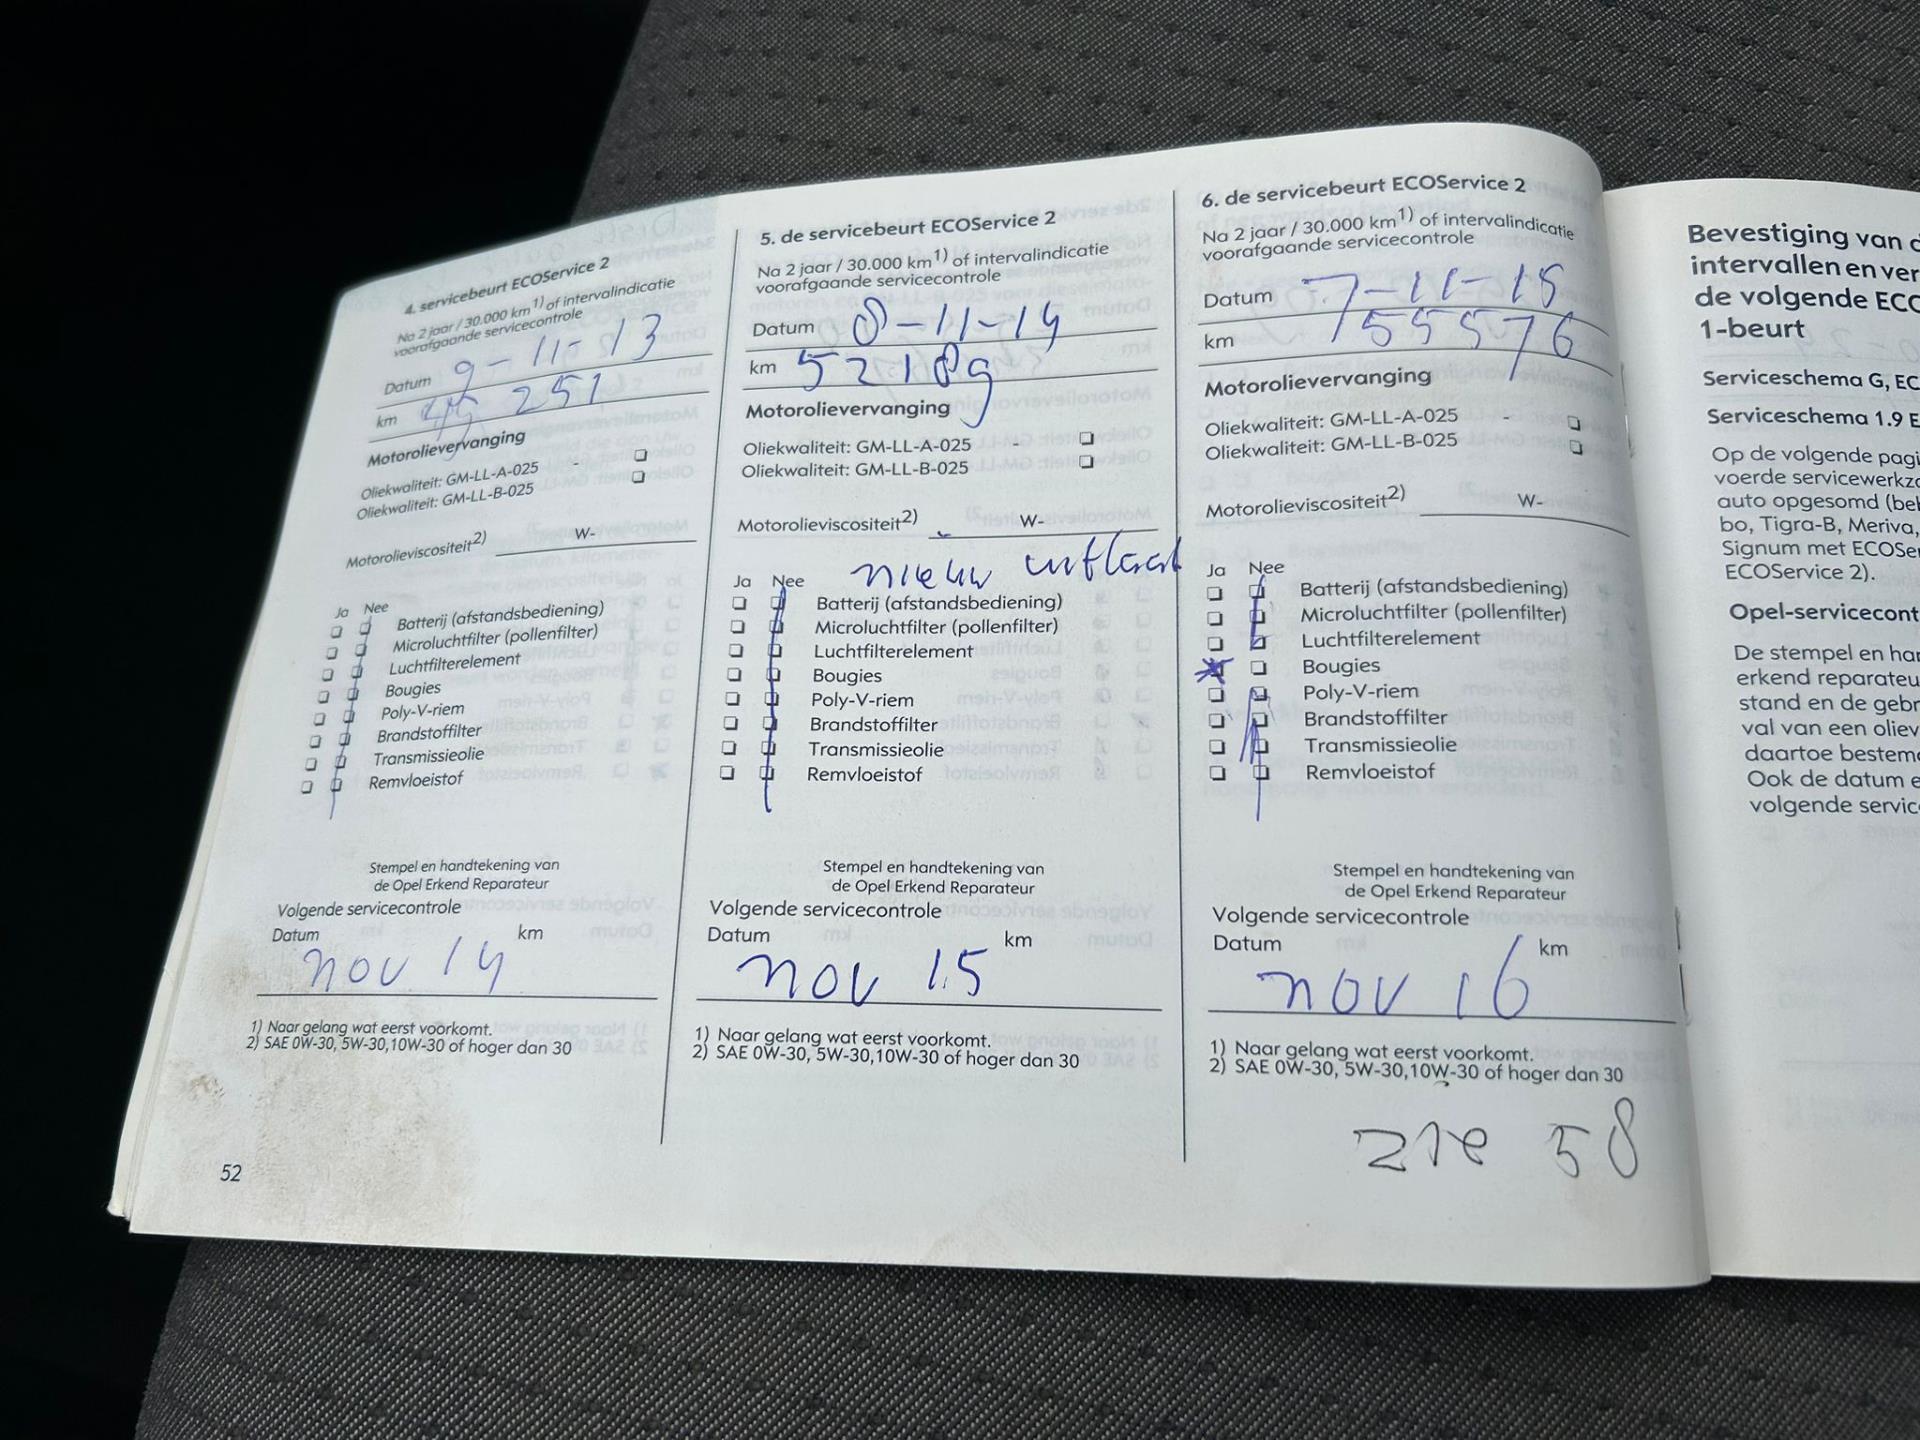 4. servicebeurt ECOService 2
Na 2 jaar / 30.000 km1) of intervalindicatie
voorafgaande servicecontrole
Datum 9-11-13
km 251
Motorolievervanging
Oliekwaliteit: GM-LL-A-025 -
Oliekwaliteit: GM-LL-B-025
Motorolieviscositeit2) W-
Ja Nee
Batterij (afstandsbediening)
Microluchtfilter (pollenfilter)
Luchtfilterelement
Bougies
Poly-V-riem
Brandstoffilter
Transmissieolie
Remvloeistof
Stempel en handtekening van
de Opel Erkend Reparateur
Volgende servicecontrole
Datum km
nov 14
1) Naar gelang wat eerst voorkomt.
2) SAE 0W-30, 5W-30,10W-30 of hoger dan 30
52
5. de servicebeurt ECOService 2
Na 2 jaar / 30.000 km1) of intervalindicatie
voorafgaande servicecontrole
Datum 8-11-14
km 52189
Motorolievervanging
Oliekwaliteit: GM-LL-A-025 -
Oliekwaliteit: GM-LL-B-025
Motorolieviscositeit2) W-
nieuw uitlaat
Ja Nee
Batterij (afstandsbediening)
Microluchtfilter (pollenfilter)
Luchtfilterelement
Bougies
Poly-V-riem
Brandstoffilter
Transmissieolie
Remvloeistof
Stempel en handtekening van
de Opel Erkend Reparateur
Volgende servicecontrole
Datum km
nov 15
1) Naar gelang wat eerst voorkomt.
2) SAE 0W-30, 5W-30,10W-30 of hoger dan 30
6. de servicebeurt ECOService 2
Na 2 jaar / 30.000 km1) of intervalindicatie
voorafgaande servicecontrole
Datum 7-11-15
km 55576
Motorolievervanging
Oliekwaliteit: GM-LL-A-025 -
Oliekwaliteit: GM-LL-B-025
Motorolieviscositeit2) W-
Ja Nee
Batterij (afstandsbediening)
Microluchtfilter (pollenfilter)
Luchtfilterelement
Bougies
Poly-V-riem
Brandstoffilter
Transmissieolie
Remvloeistof
Stempel en handtekening van
de Opel Erkend Reparateur
Volgende servicecontrole
Datum km
nov 16
1) Naar gelang wat eerst voorkomt.
2) SAE 0W-30, 5W-30,10W-30 of hoger dan 30
zie 58
Bevestiging van d
intervallen en ver
de volgende ECO
1-beurt
Serviceschema G, EC
Serviceschema 1.9 E
Op de volgende pagi
voerde servicewerkza
auto opgesomd (bel
bo, Tigra-B, Meriva,
Signum met ECOSer
ECOService 2).
Opel-servicecont
De stempel en han
erkend reparateu
stand en de gebr
val van een oliev
daartoe bestemd
Ook de datum e
volgende servic